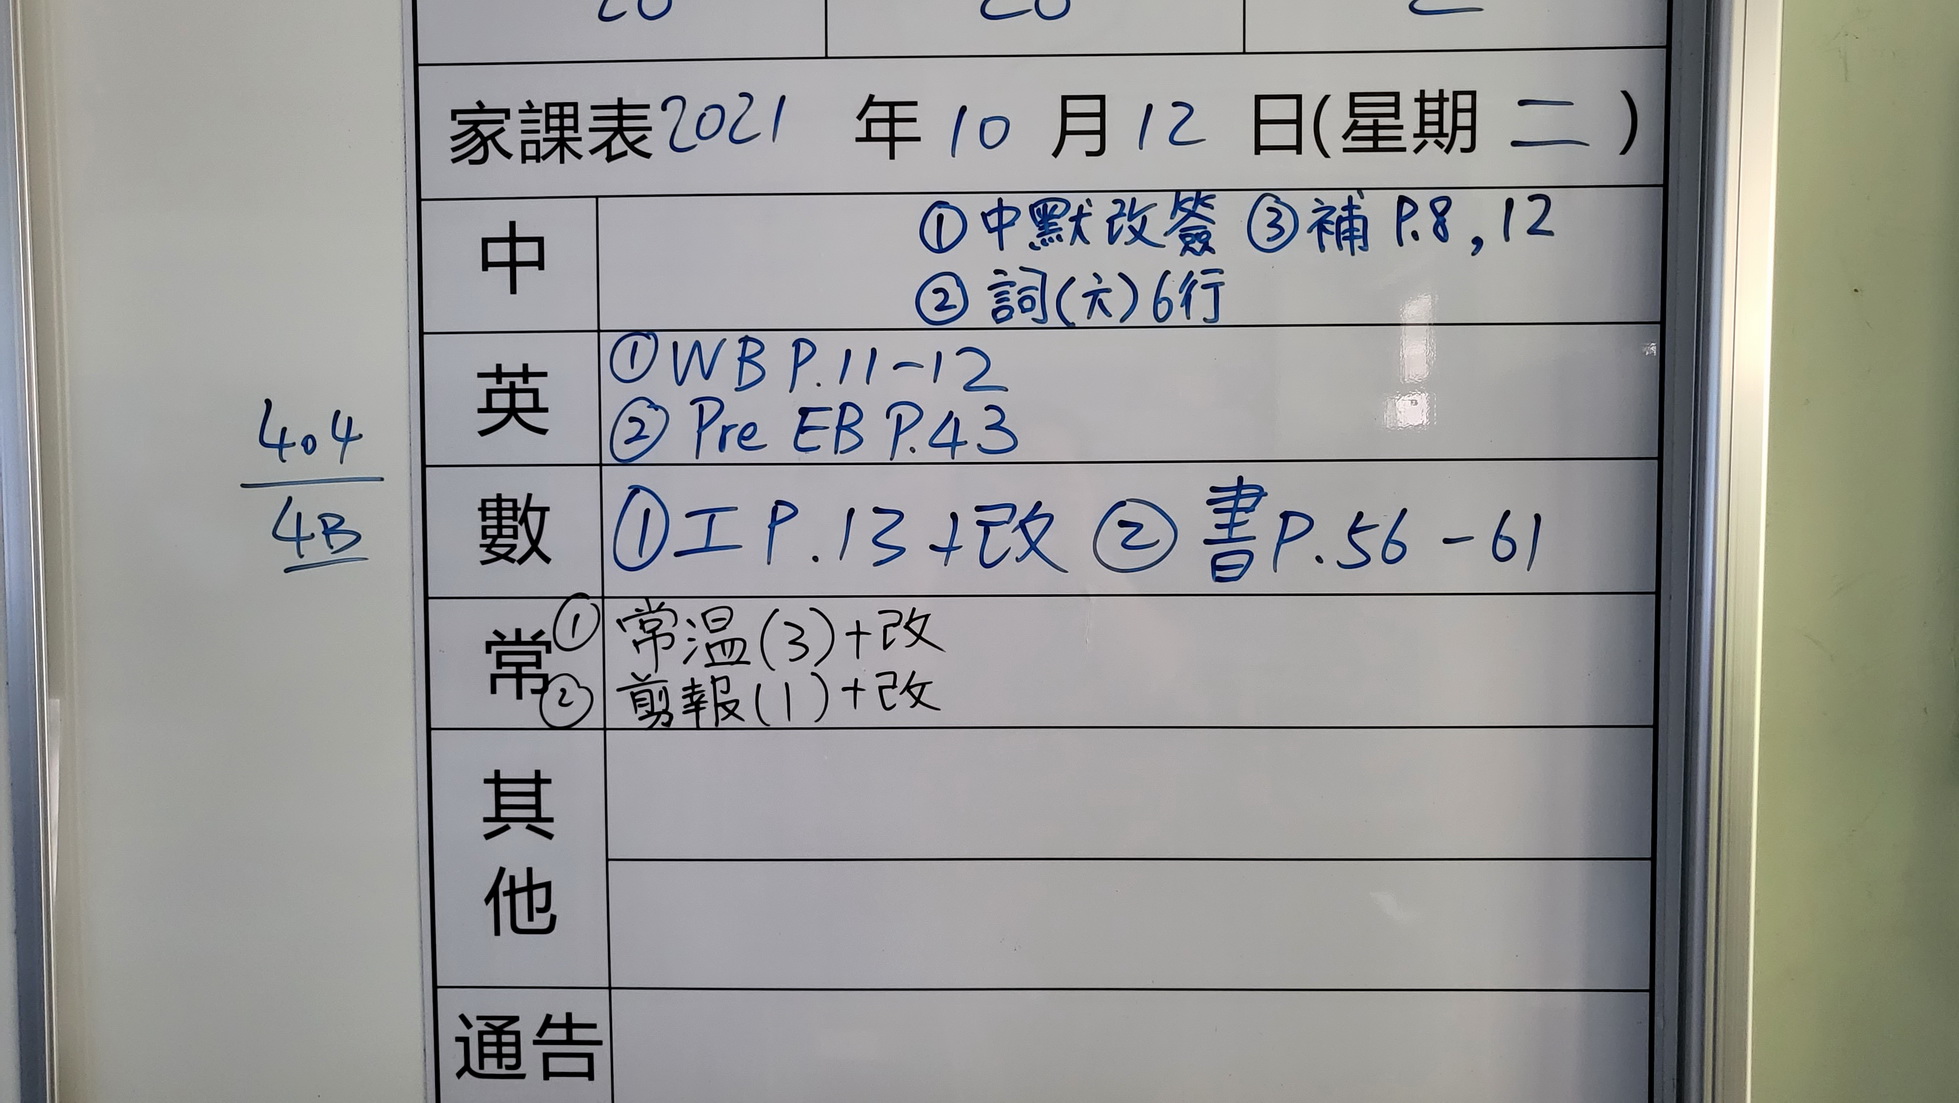 家課表2021 年 10 月 12 日(星期 二 )
中
①中默改簽 ③補 P.8, 12
② 詞(六)6行
英
①WB P.11-12
② Pre EB P.43
404
4B
數
①工 P.13+改 ② 書P.56-61
常
① 常温(3)+改
② 剪報(1)+改
其他
通告